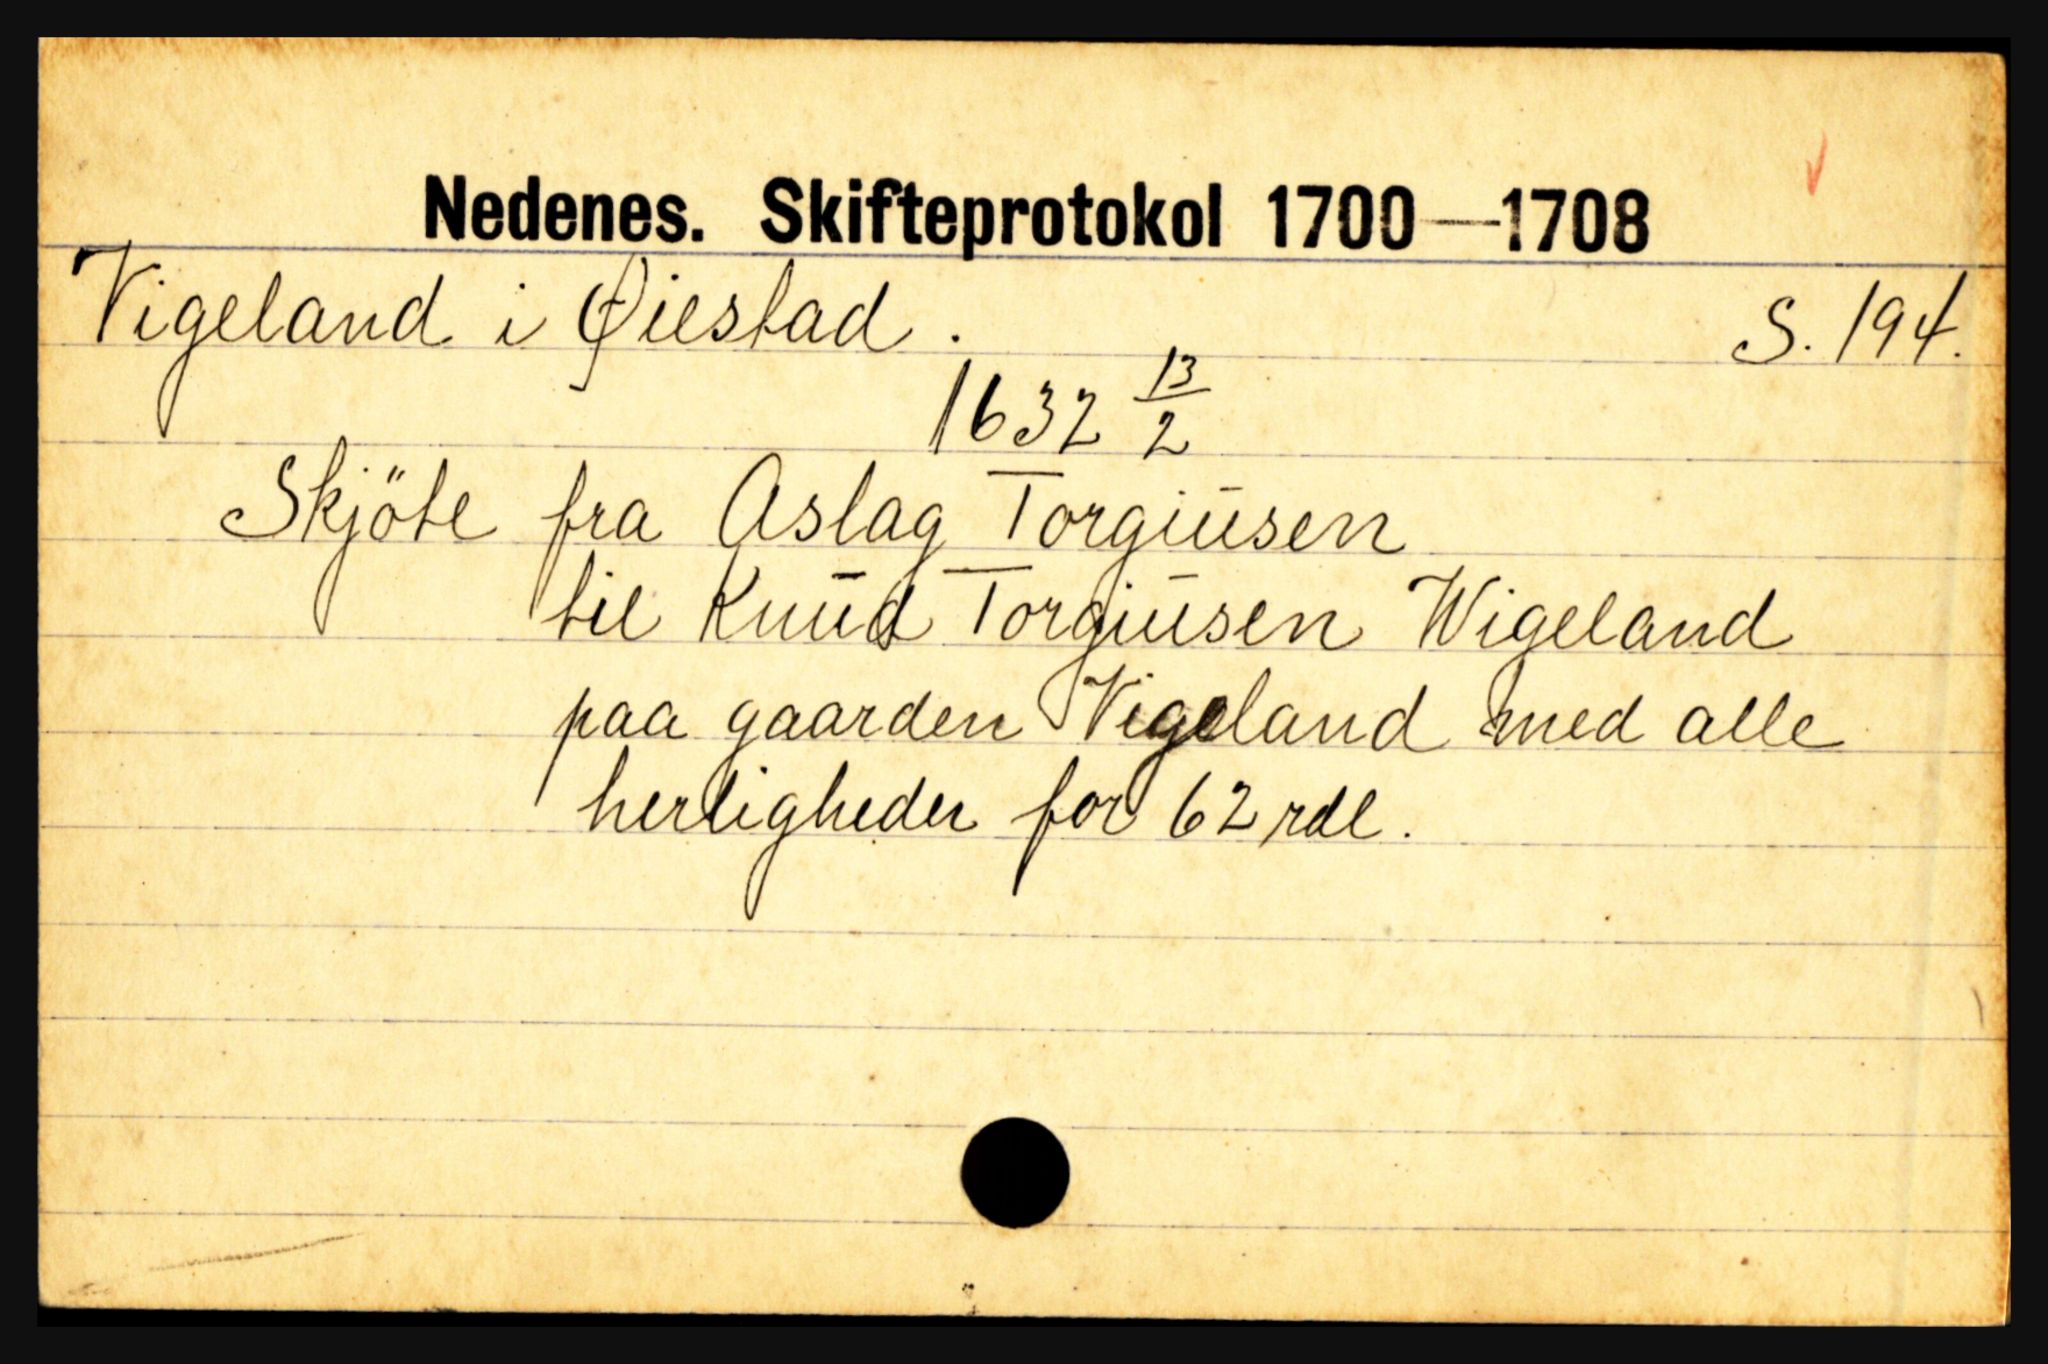 Nedenes. Skifteprotokol 1700—1708
Vigeland i Øiestad. S. 194.
1632 13/2
Skjöte fra Aslag Torgiusen
til Knud Torgiusen Wigeland
paa gaarden Vigeland med alle
herligheder for 62 rdl.